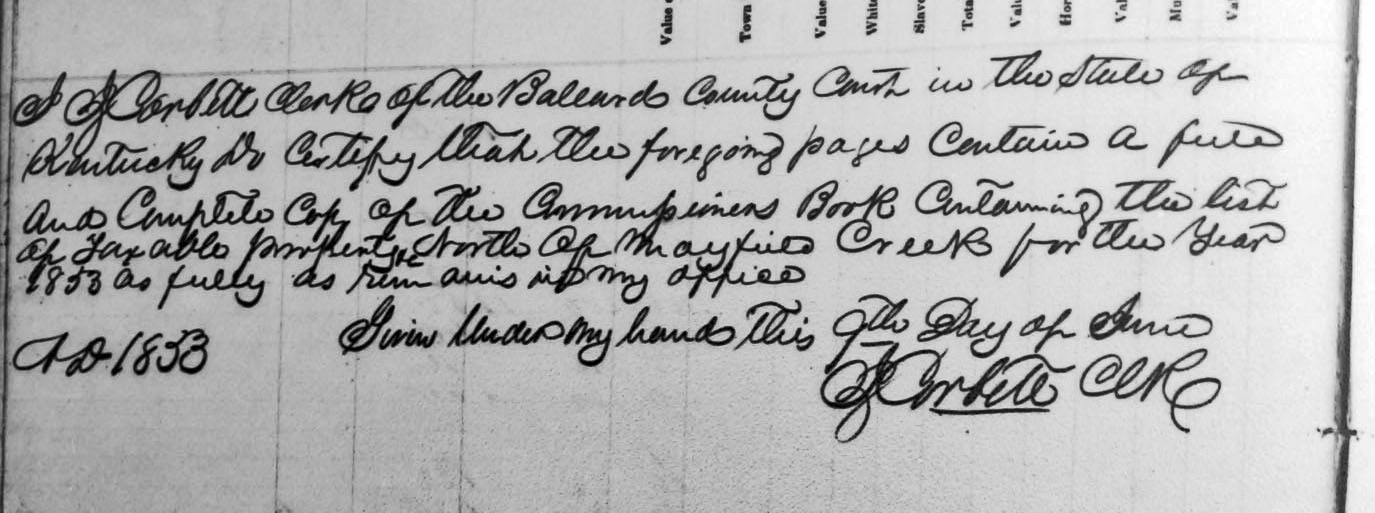 Value
Town
Value
White
Slave
Tota
Val
Hor
Val
Mu
Va
I J Corbett Clerk of the Ballard County Court in the State of
Kentucky Do Certify that the foregoing pages Contain a full
and Complete Copy of the Commissioners Book Containing the list
of Taxable property &c North of Mayfield Creek for the Year
1853 as fully as remains in my office
Given Under my hand This 9th Day of June
AD 1853
J Corbett Clk